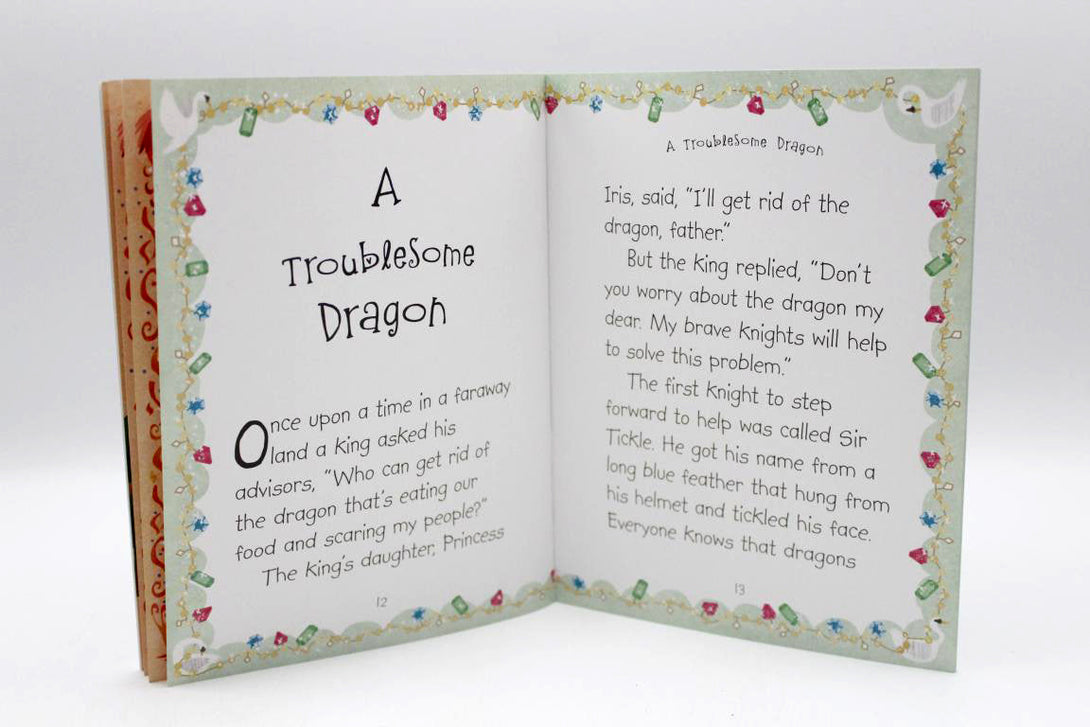 A
Troublesome
Dragon
Once upon a time in a faraway
land a king asked his
advisors, “Who can get rid of
the dragon that’s eating our
food and scaring my people?”
The king’s daughter, Princess
12
A Troublesome Dragon
Iris, said, “I’ll get rid of the
dragon, father.”
But the king replied, “Don’t
you worry about the dragon my
dear. My brave knights will help
to solve this problem.”
The first knight to step
forward to help was called Sir
Tickle. He got his name from a
long blue feather that hung from
his helmet and tickled his face.
Everyone knows that dragons
13